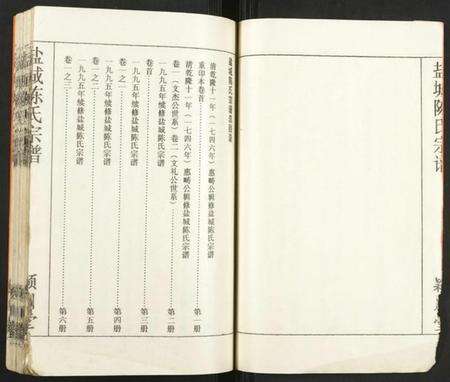 盐城陈氏宗谱
盐城陈氏宗谱总目录
清乾隆十一年（一七四六年）惠畴公辑修盐城陈氏宗谱
重印本卷首……第一册
清乾隆十一年（一七四六年）惠畴公辑修盐城陈氏宗谱
卷一（文杰公世系）卷二（文礼公世系）……第二册
一九九五年续修盐城陈氏宗谱
卷首……第三册
一九九五年续修盐城陈氏宗谱
卷一之一……第四册
一九九五年续修盐城陈氏宗谱
卷一之二……第五册
一九九五年续修盐城陈氏宗谱
卷一之三……第六册
盐城陈氏宗谱